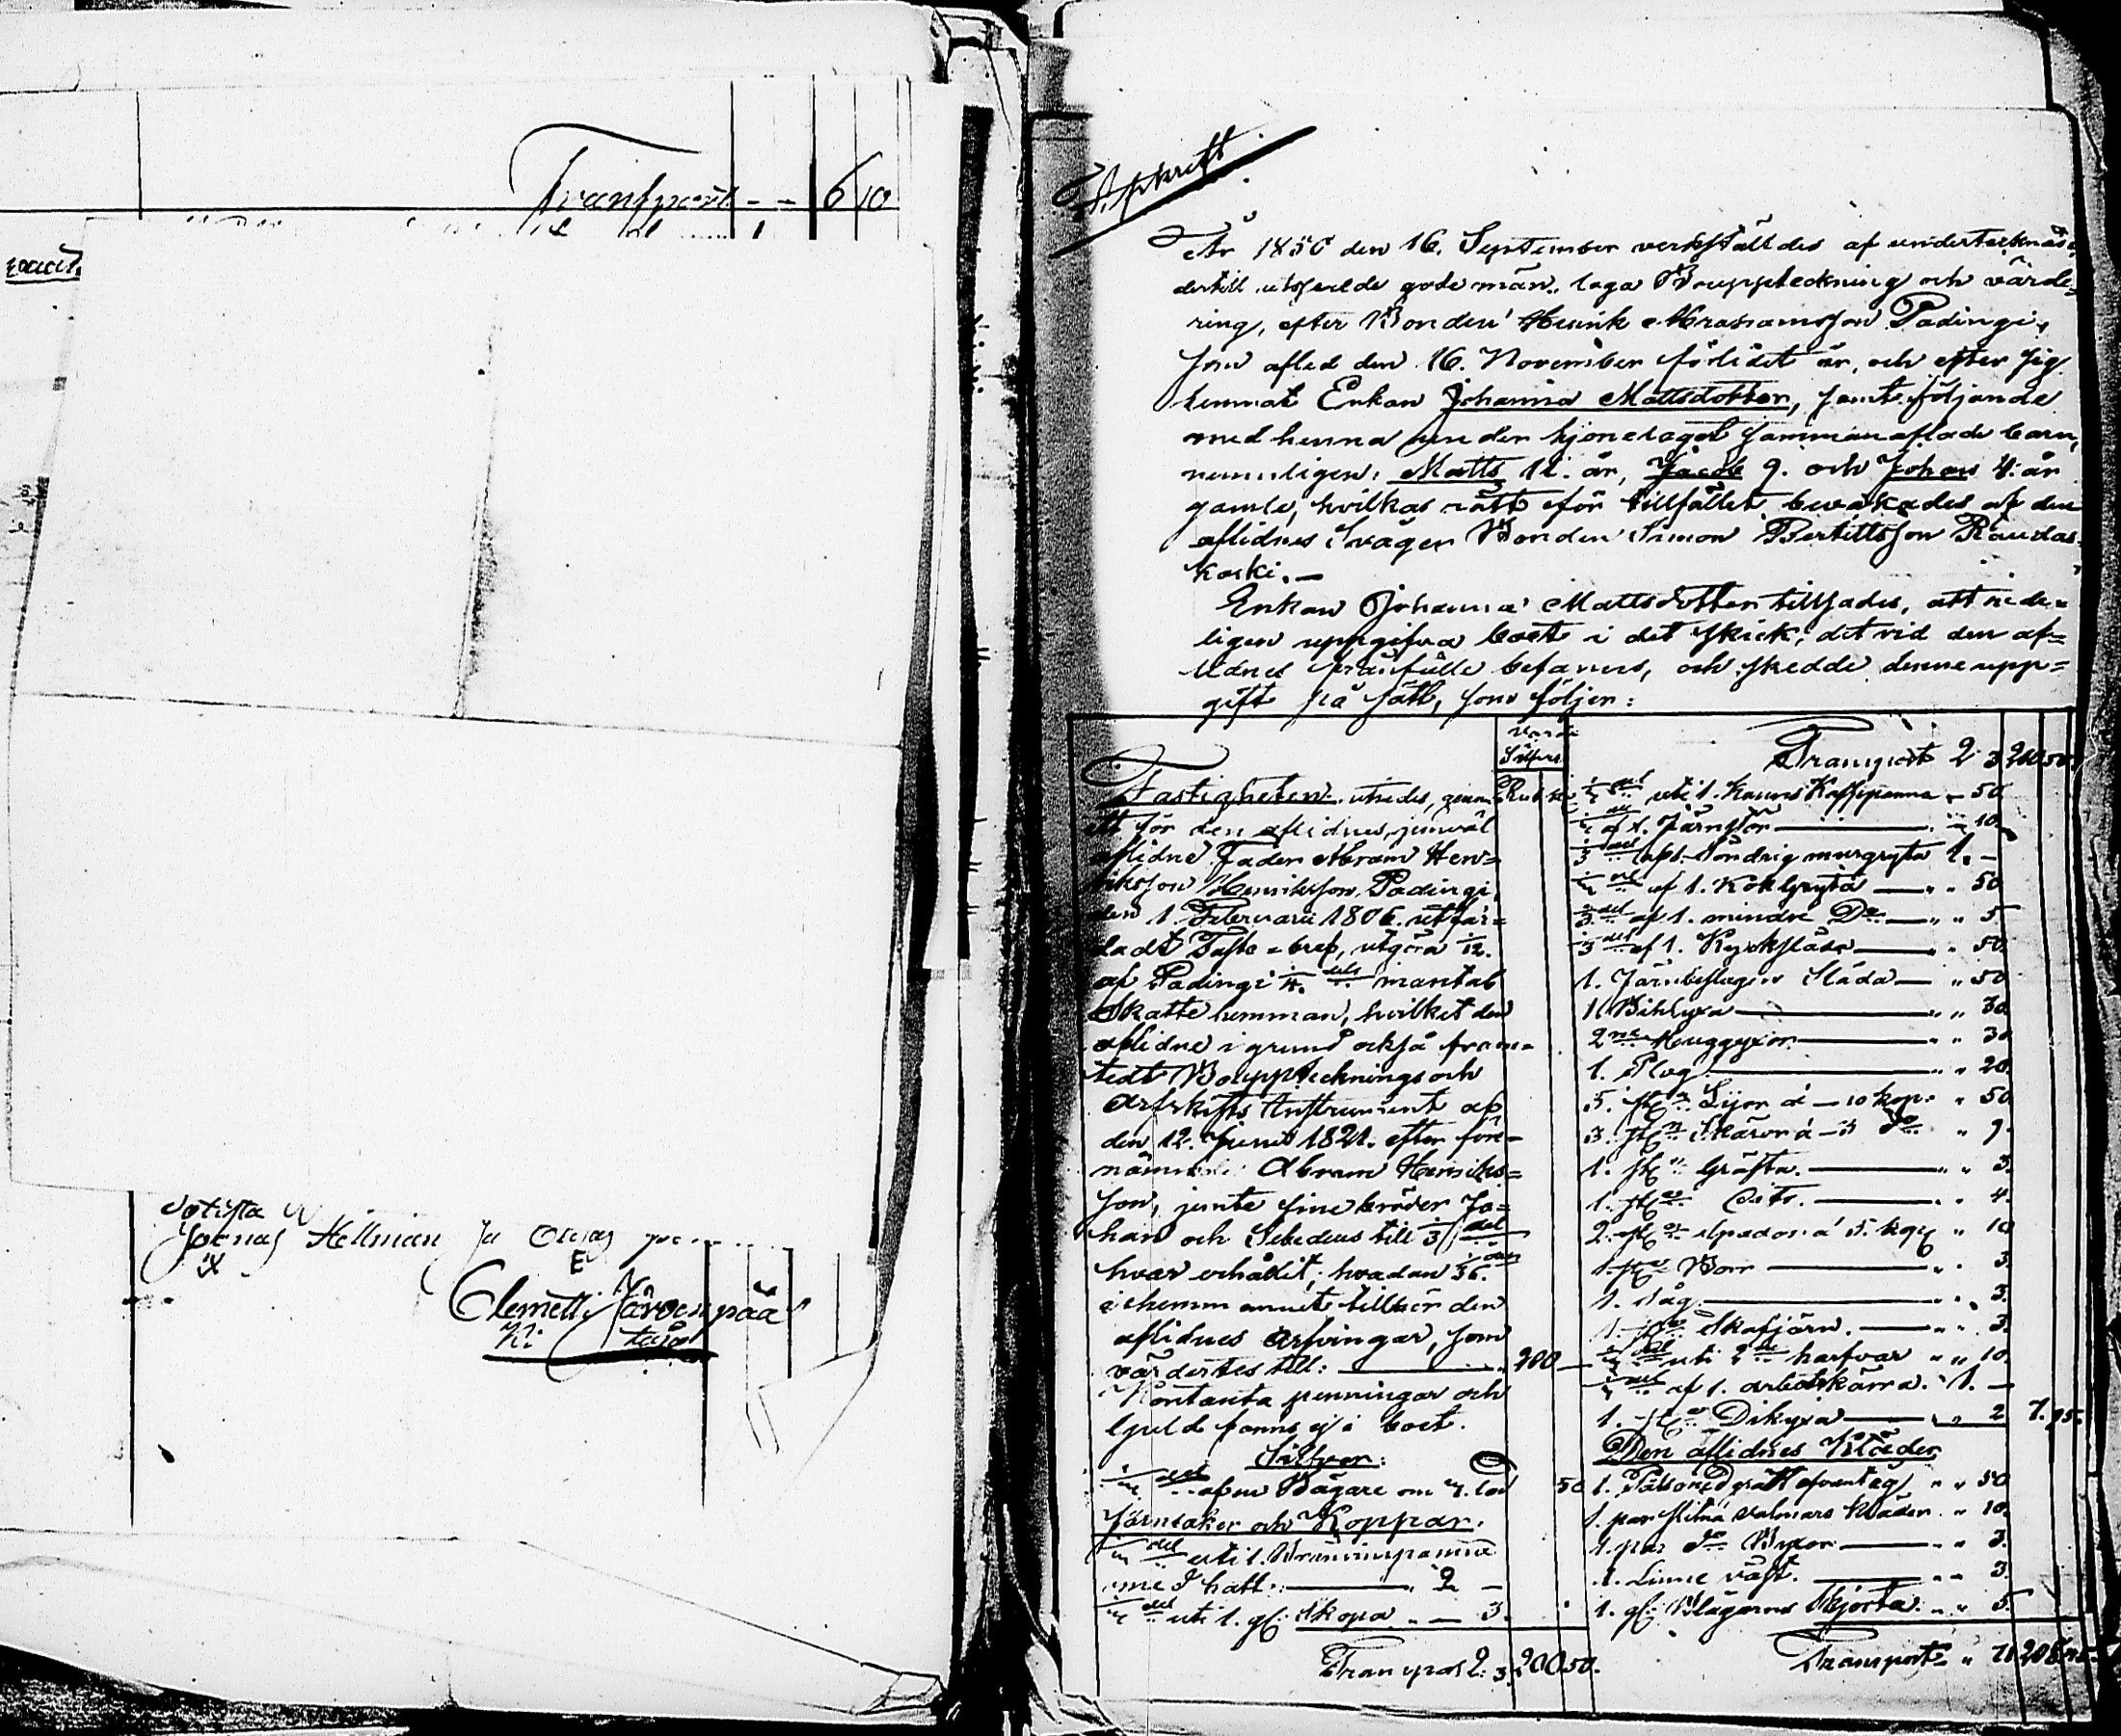 Transport - - 6 10
Joonas Hellman ja
Clemetti Järvenpää
Afskrift
År 1850 den 16. September verkställdes af undertecknade
dertill utsedde gode män, laga Bouppteckning och värde=
ring, efter Bonden Henrik Abrahamsson Padingi,
som afled den 16. November förlidet år, och efter sig
lemnat Enkan Johanna Mattsdotter, samt följande
med henne under hjonelaget sammanaflade barn,
nemnligen: Matts 12. år, Jacob 9. och Johan 4. år
gamle, hvilkas rätt för tillfället bevakades af den
aflidnes Svåger Bonden Simon Bertillsson Raudas=
koski. —
Enkan Johanna Mattsdotter tillsades, att rede=
ligen uppgifva boet i det skick, det vid den af=
lidnes frånfälle befanns, och skedde denne upp=
gift på sätt, som följer:
Värde
Silfver
Fastigheten utredes, genom Rub. k.
ett för den aflidnes, jemväl
aflidne Fader Abram Hen=
riksson Henriksson Padingi
den 1. Februarii 1806. utfär=
dadt Faste=bref, utgöra 1/12.
af Padingi 1/4. dels mantal
Skatte hemman, hvilket den
aflidne i grund också fram=
tedt Bouppteckning och
Arfskifts Instrument af
den 12. Junii 1821. efter för=
nämnde Abram Henriks=
son, jemte sine bröder Jo=
han och Sebedeus till 1/3 del
hvar erhållit; hvadan 1/36. del
i hemmanet tillhör den
aflidnes Arfvingar, som
värdertes till: — 200 —
Kontanta penningar och
Guld fanns ej i boet.
Silfver:
del af en Bägare om 4. lod 50
Järnsaker och Koppar:
del uti 1. Brännvinspanna
med hatt: — 2 —
del uti 1. gl: Skopa — 3.
Transport 2. 3. 200 50.
Transport 2 3 200 50.
del uti 1. Kannas Kaffepanna „ 50
del af 1. Järnstör — „ 10.
1/3 del af 1. Söndrig murgryta 1. —
del af 1. Kokgryta — „ 50
1/3 del af 1. mindre Do — „ 5
1/3 del af 1. Kyrksläda — „ 50.
1. Järnbeslagen Släda — „ 50
1. Bihlyxa — „ 30.
2ne Huggyxor — „ 30
1. Plog — „ 20.
5. st. Lijor á — 10 kop: „ 50
3. st. Skäror á — 3 do „ 9.
1. st. Gräfta. — „ 3.
1. st. — „ 4.
2. st. Spador á 5. kop „ 10
1. st. Borr — „ 3.
1. Såg — „ 3.
1. st. Skafjärn. — „ 3.
del uti 2ne harfvar „ 10.
del af 1. arbetskärra. 1. —
1. st. Dikyxa — „ 2 7. 95.
Den aflidnes Kläder
1. Palsonad grått „ 50
1. par slitna valmars kläder „ 10.
1. par do Byxor — „ 3.
1. Linne väst. — „ 3.
1. gl: Blågarns Skjorta: „ 5.
Transport „ 71 208 45.